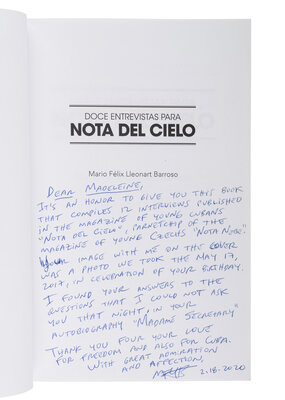 DOCE ENTREVISTAS PARA
NOTA DEL CIELO
Mario Félix Lleonart Barroso
DEAR MADELEINE,
IT'S AN HONOR TO GIVE YOU THIS BOOK
THAT COMPILES 12 INTERVIEWS PUBLISHED
IN THE MAGAZINE OF YOUNG CUBANS
"NOTA DEL CIELO", PARNETCHIP OF THE
MAGAZINE OF YOUNG CZECHS "NOTA NOTE."
YOUR IMAGE WITH ME ON THE COVER
WAS A PHOTO WE TOOK THE MAY 17,
2017, IN CELEBRATION OF YOUR BIRTHDAY.
I FOUND YOUR ANSWERS TO THE
QUESTIONS THAT I COULD NOT ASK
YOU THAT NIGHT, IN YOUR
AUTOBIOGRAPHY "MADAME SECRETARY"
THANK YOU FOUR YOUR LOVE
FOR FREEDOM AND ALSO FOR CUBA.
WITH GREAT ADMIRATION
AND AFFECTION,
2-18-2020